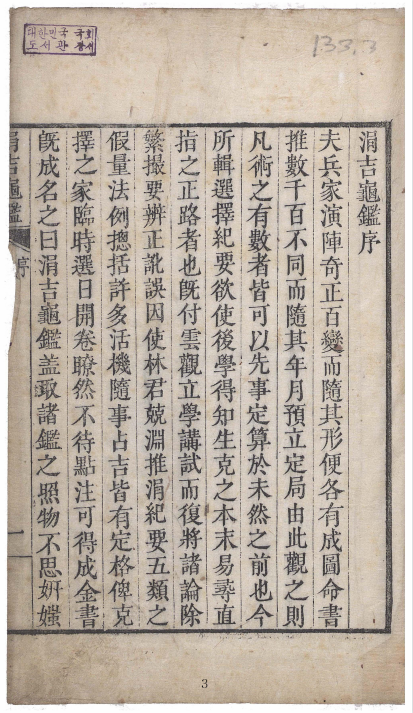 대한민국 국회
도서관 장서
133.3
涓吉龜鑑序
夫兵家演陣奇正百變而隨其形便各有成圖命書
推數千百不同而隨其年月預立定局由此觀之則
凡術之有數者皆可以先事定算於未然之前也今
所輯選擇紀要欲使後學得知生克之本末易尋直
指之正路者也旣付雲觀立學講試而復將諸論除
繁撮要辨正訛誤因使林君兢淵推涓紀要五類之
假量法例摠括許多活機隨事占吉皆有定格俾克
擇之家臨時選日開卷瞭然不待點注可得成金書
旣成名之曰涓吉龜鑑盖取諸鑑之照物不思姸媸
涓吉龜鑑
序
一
3